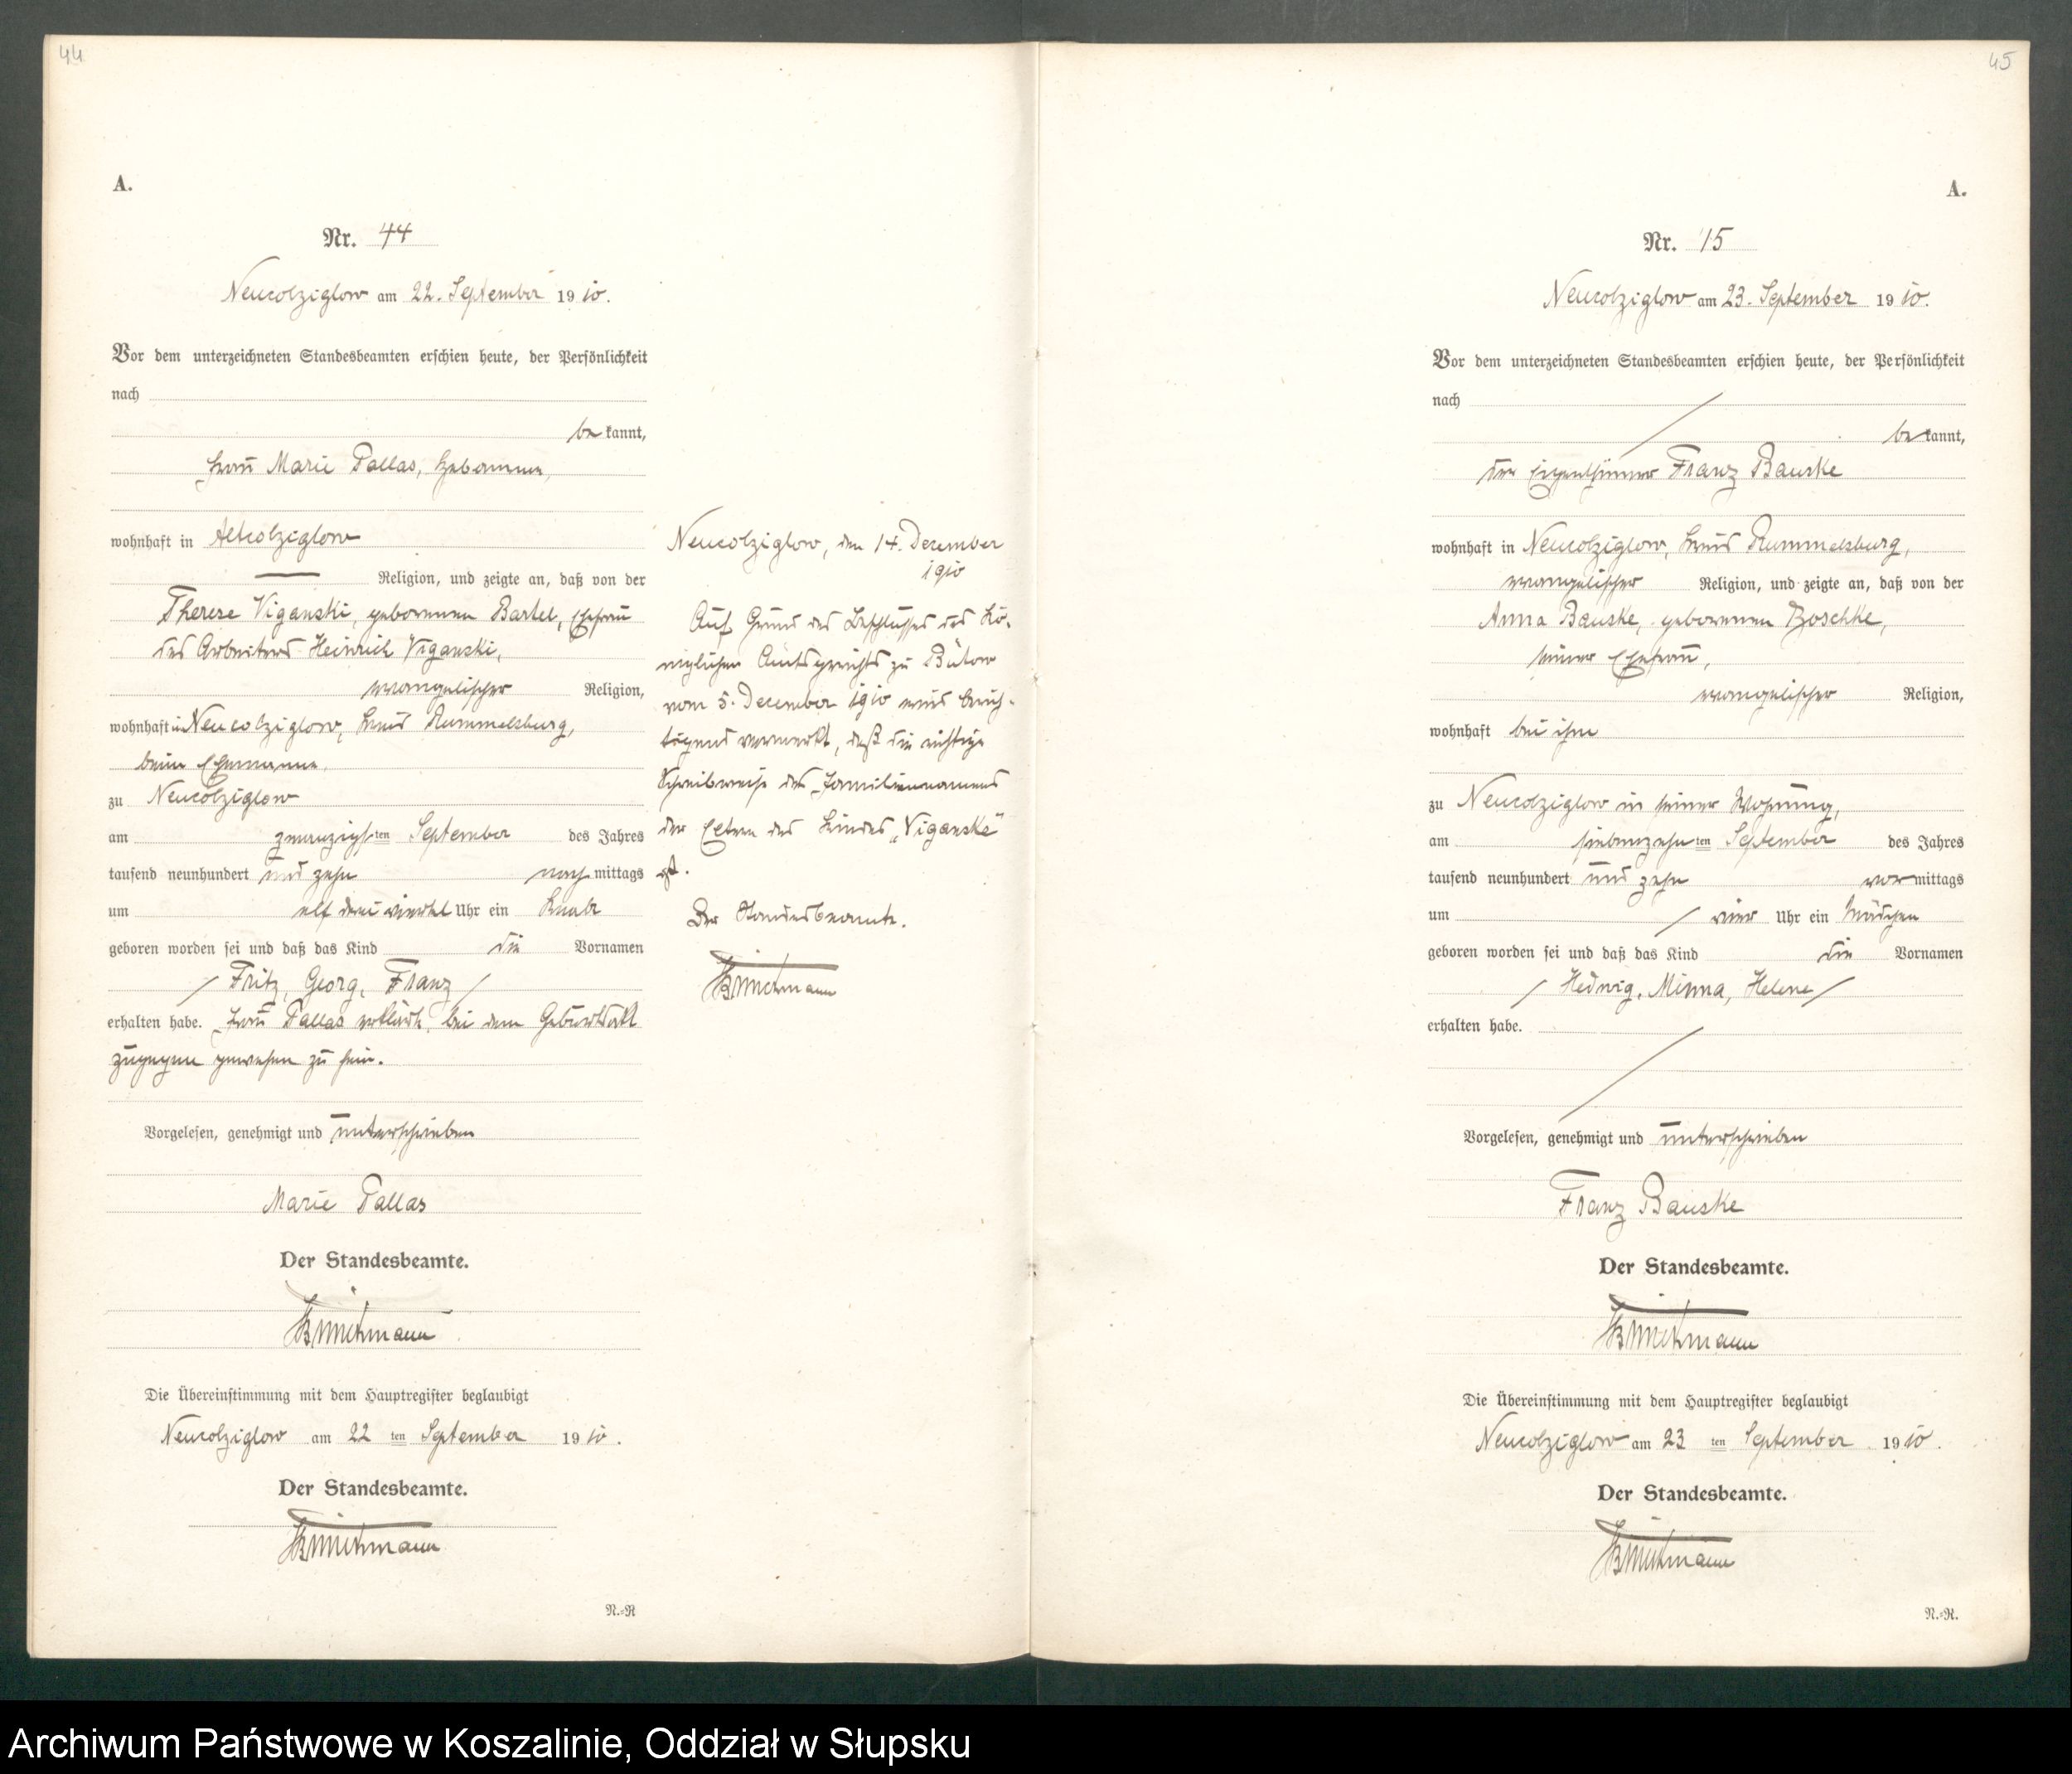 44
A.
Nr. 44
Neucolziglow am 22. September 1910.
Vor dem unterzeichneten Standesbeamten erschien heute, der Persönlichkeit
nach
bekannt,
Frau Marie Pallas, Hebamme,
wohnhaft in Altcolziglow
Religion, und zeigte an, daß von der
Therese Viganski, geborenen Bartel, Ehefrau
des Arbeiters Heinrich Viganski,
evangelischer Religion,
wohnhaft in Neucolziglow, Kreis Rummelsburg,
beim Ehemanne,
zu Neucolziglow
am zwanzigsten September des Jahres
tausend neunhundert und zehn nachmittags
um elf drei viertel Uhr ein Knabe
geboren worden sei und daß das Kind die Vornamen
/ Fritz, Georg, Franz /
erhalten habe. Frau Pallas erklärte, bei dem Geburtsakt
zugegen gewesen zu sein.
Vorgelesen, genehmigt und unterschrieben
Marie Pallas
Der Standesbeamte.
Die Übereinstimmung mit dem Hauptregister beglaubigt
Neucolziglow am 22 ten September 1910.
Der Standesbeamte.
N.=R
Neucolziglow, den 14. Dezember
1910
Auf Grund des Beschlusses des Kö-
niglichen Amtsgerichts zu Bütow
vom 5. Dezember 1910 wird berich-
tigend vermerkt, daß die richtige
Schreibweise des Familiennamens
der Eltern des Kindes „Viganske"
ist.
Der Standesbeamte.
45
A.
Nr. 45
Neucolziglow am 23. September 1910.
Vor dem unterzeichneten Standesbeamten erschien heute, der Persönlichkeit
nach
bekannt,
der Eigenthümer Franz Bauske
wohnhaft in Neucolziglow, Kreis Rummelsburg,
evangelischer Religion, und zeigte an, daß von der
Anna Bauske, geborenen Boschke,
seiner Ehefrau,
evangelischer Religion,
wohnhaft bei ihm
zu Neucolziglow in seiner Wohnung,
am siebenzehnten September des Jahres
tausend neunhundert und zehn vormittags
um / vier Uhr ein Mädchen
geboren worden sei und daß das Kind die Vornamen
/ Hedwig, Minna, Helene /
erhalten habe.
Vorgelesen, genehmigt und unterschrieben
Franz Bauske
Der Standesbeamte.
Die Übereinstimmung mit dem Hauptregister beglaubigt
Neucolziglow am 23 ten September 1910.
Der Standesbeamte.
N.=R.
Archiwum Państwowe w Koszalinie, Oddział w Słupsku